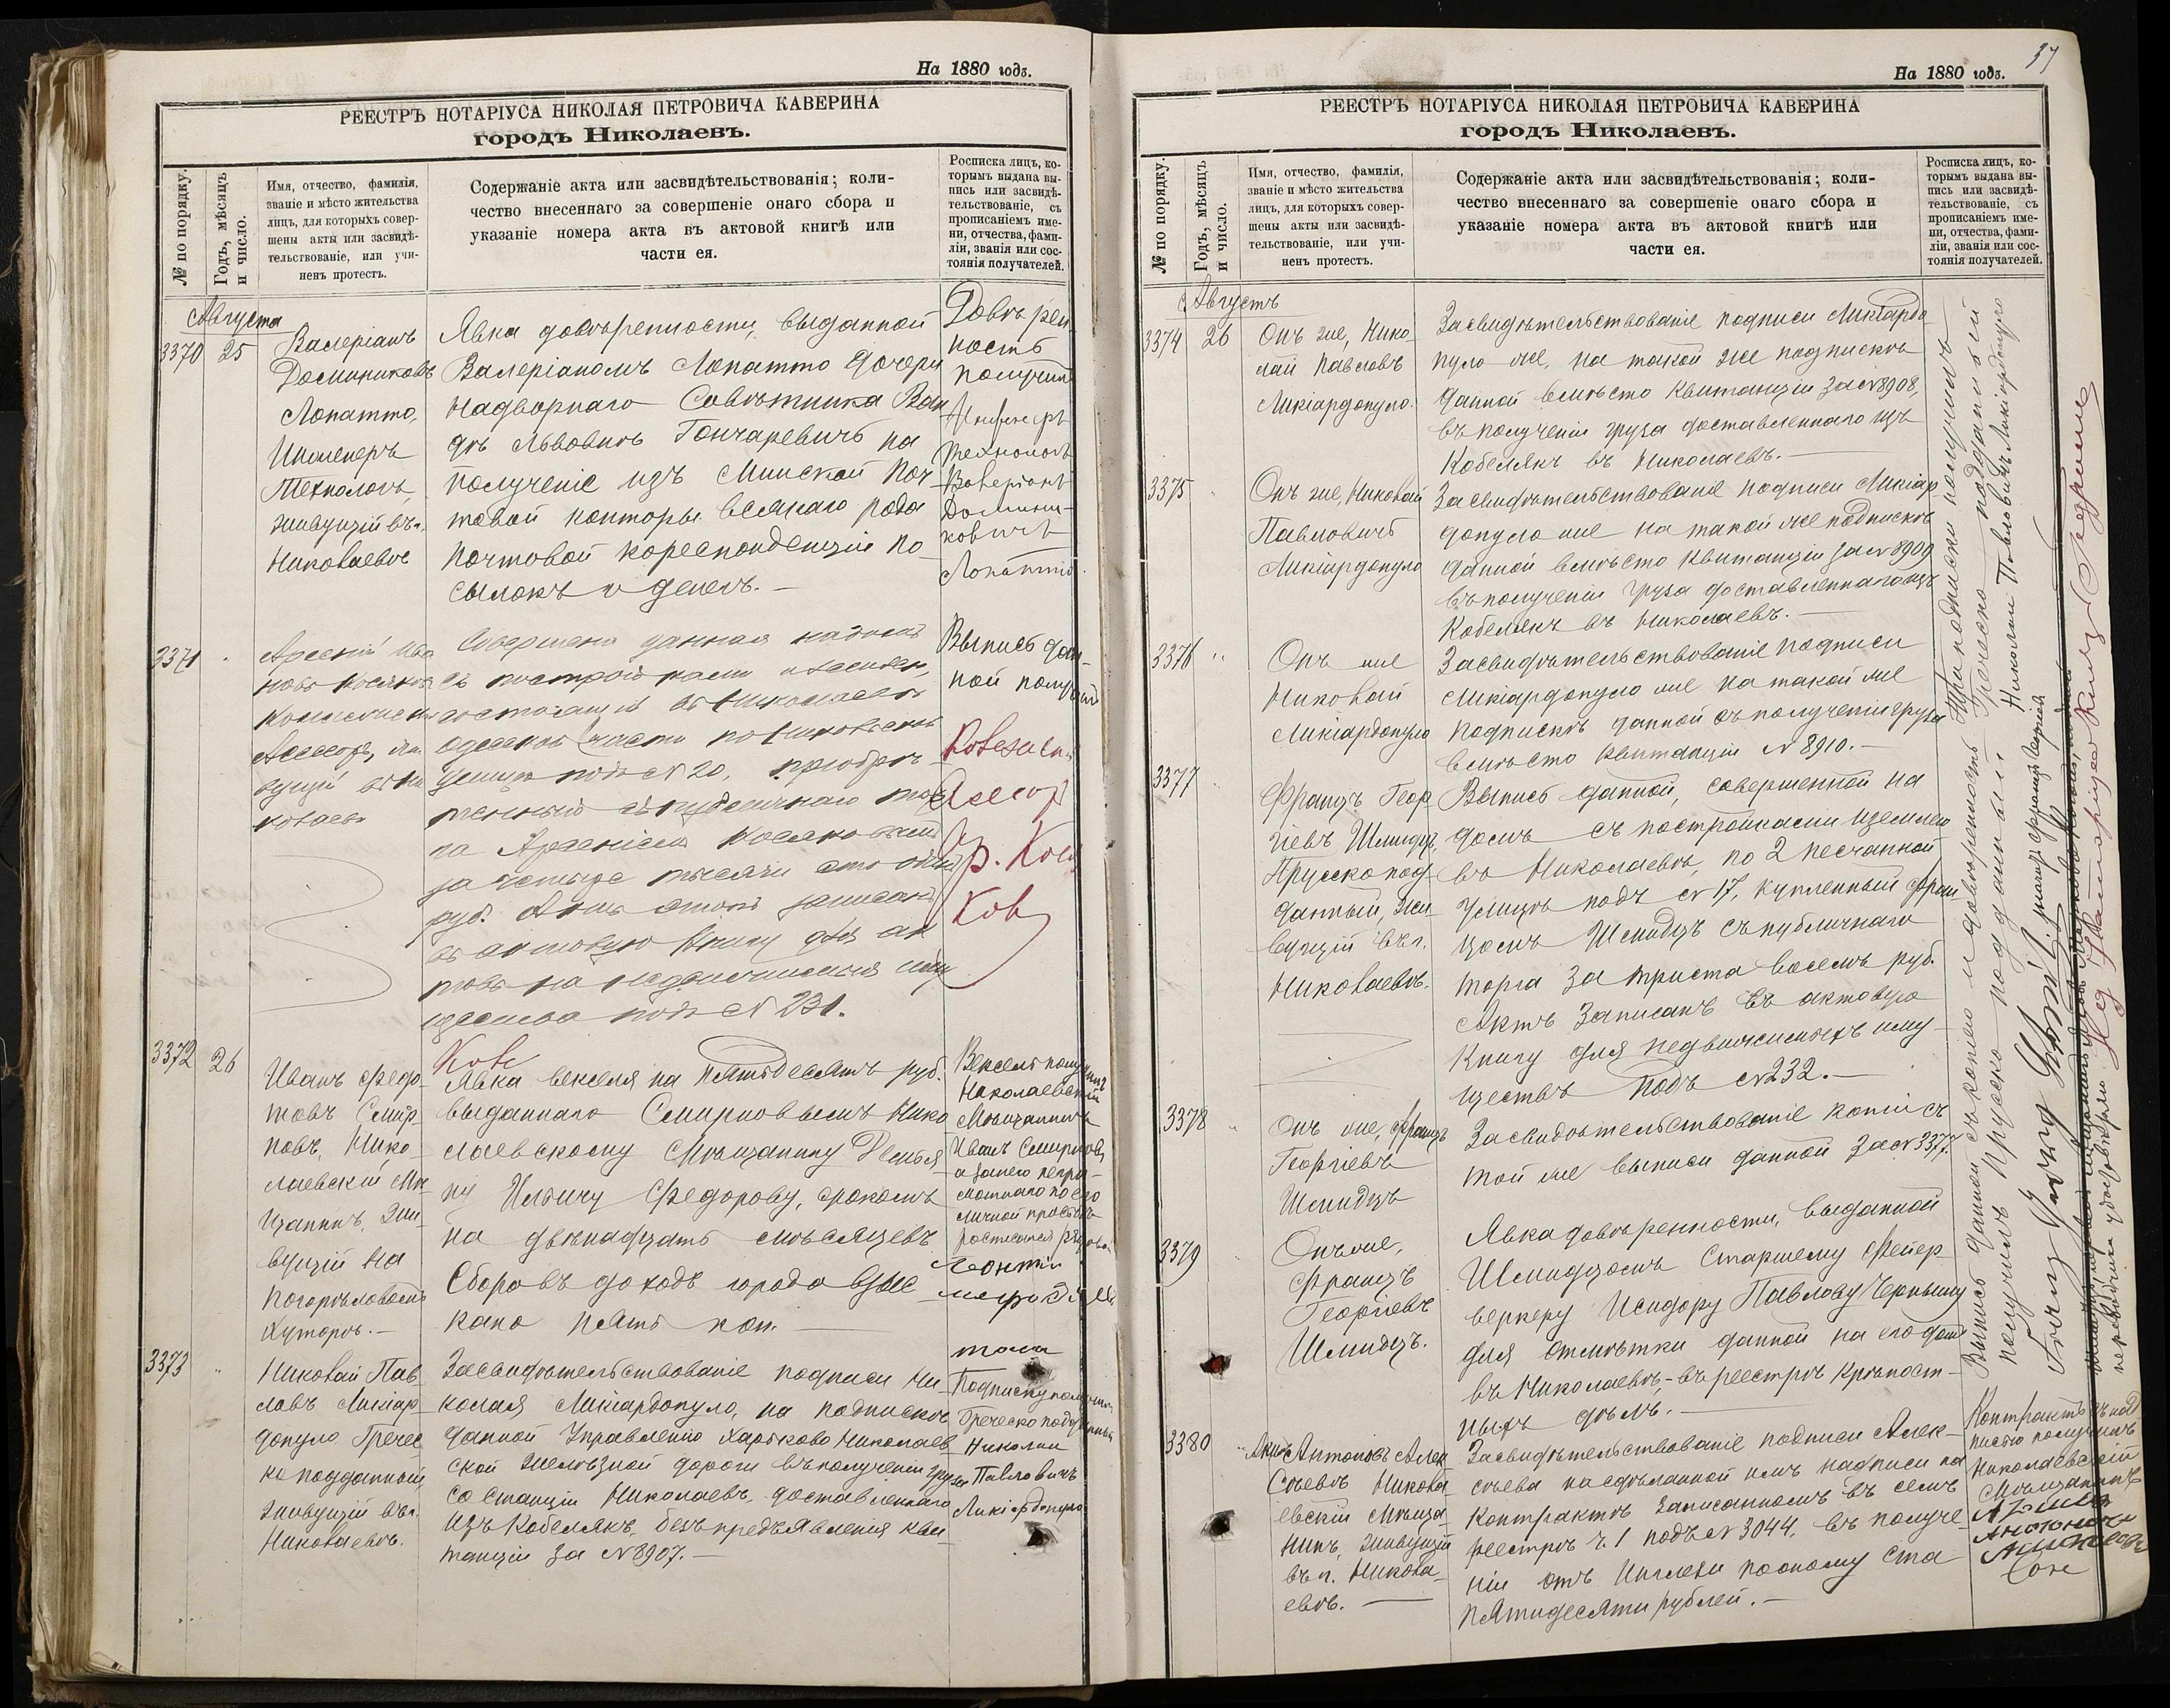 На 1880 годъ.
РЕЕСТРЪ НОТАРІУСА НИКОЛАЯ ПЕТРОВИЧА КАВЕРИНА
городъ Николаевъ.
№ по порядку.
Годъ, мѣсяцъ
и число.
Имя, отчество, фамилія,
званіе и мѣсто жительства
лицъ, для которыхъ совер-
шены акты или засвидѣ-
тельствованіе, или учи-
ненъ протестъ.
Содержаніе акта или засвидѣтельствованія; коли-
чество внесеннаго за совершеніе онаго сбора и
указаніе номера акта въ актовой книгѣ или
части ея.
Росписка лицъ, ко-
торымъ выдана вы-
пись или засвидѣ-
тельствованіе, съ
прописаніемъ име-
ни, отчества, фами-
ліи, званія или сос-
тоянія получателей.
Августа
3370 25
Валеріанъ
Доминиковъ
Лопатто,
Инженеръ
Технологъ,
живущій въ г.
Николаевѣ
Явка довѣренности, выданной
Валеріаномъ Лопатто дочери
Надворнаго Совѣтника Ван
дѣ Львовнѣ Гончаревичъ на
полученіе изъ Минской поч
товой конторы всякаго рода
почтовой кореспонденціи по
сылокъ и денегъ. —
Довѣрен
ность
получилъ
Инженеръ
Технологъ
Валеріанъ
Домини-
ковичъ
Лопатто.
3371
Арсеній Ива
новъ
Ассесоръ, жи
вущій въ Ни
колаевѣ
Совершена данная на домъ
съ постройками и землею,
состоящій въ Николаевѣ
Одесской части по Никольской
улицѣ подъ № 20, пріобрѣ
тенный съ публичнаго тор
га Арсеніемъ
за четыре тысячи сто
руб. Актъ этотъ записанъ
въ актовую книгу для ак
товъ на недвижимыя иму
щества подъ № 231.
Выпись дан-
ной получилъ
3372 26
Иванъ Федо-
товъ Смир-
новъ, Нико-
лаевскій Мѣ
щанинъ, жи-
вущій на
Погорѣловомъ
хуторѣ. —
Явка векселя на пятьдесятъ руб.
выданнаго Смирновымъ Нико
лаевскому Мѣщанину Демья
ну Ильичу Федорову, срокомъ
на двѣнадцать мѣсяцевъ
Сборовъ доходъ города взыс
кано пять коп.
Вексель получилъ
Николаевскій
Мѣщанинъ
Иванъ Смирновъ
а за него негра-
мотнаго по его
личной просьбѣ
росписался рядовой
Леонтій
3373
Николай Пав-
ловъ Ликіар-
допуло Гречес
ко подданный,
живущій въ г.
Николаевѣ.
Засвидѣтельствованіе подписи Ни-
колая Ликіардопуло, на подпискѣ
данной Управленію Харьково Николаев
ской желѣзной дороги въ полученіи груза
со станціи Николаевъ, доставленнаго
изъ Кобелякъ, безъ предъявленія кви
танціи за № 8907. —
Подписку получилъ
Греческо подданный
Николай
Павловичъ
Ликіардопуло
37
На 1880 годъ.
РЕЕСТРЪ НОТАРІУСА НИКОЛАЯ ПЕТРОВИЧА КАВЕРИНА
городъ Николаевъ.
№ по порядку.
Годъ, мѣсяцъ
и число.
Имя, отчество, фамилія,
званіе и мѣсто жительства
лицъ, для которыхъ совер-
шены акты или засвидѣ-
тельствованіе, или учи-
ненъ протестъ.
Содержаніе акта или засвидѣтельствованія; коли-
чество внесеннаго за совершеніе онаго сбора и
указаніе номера акта въ актовой книгѣ или
части ея.
Росписка лицъ, ко-
торымъ выдана вы-
пись или засвидѣ-
тельствованіе, съ
прописаніемъ име-
ни, отчества, фами-
ліи, званія или сос-
тоянія получателей.
Августъ
3374 26
Онъ же, Нико-
лай Павловъ
Ликіардопуло.
Засвидѣтельствованіе подписи Ликіардо
пуло же, на такой же подпискѣ
данной вмѣсто квитанціи за № 8908,
въ полученіи груза доставленнаго изъ
Кобелякъ въ Николаевъ. —
3375
Онъ же, Николай
Павловичъ
Ликіардопуло
Засвидѣтельствованіе подписи Ликіар
допуло же на такой же подпискѣ
данной вмѣсто квитанціи за № 8909
въ полученіи груза доставленнаго изъ
Кобелякъ въ Николаевъ. —
3376
Онъ же
Николай
Ликіардопуло
Засвидѣтельствованіе подписи
Ликіардопуло же на такой же
подпискѣ данной въ полученіи груза
вмѣсто квитанціи № 8910. —
3377
Францъ Геор
гіевъ Шмидцъ,
Прусско под-
данный, жи-
вущій въ г.
Николаевѣ.
Выпись данной, совершенной на
домъ съ постройками и землею
въ Николаевѣ, по 2 песчанной
улицѣ подъ № 17, купленный Фран
цомъ Шмидцъ съ публичнаго
торга за триста восемь руб.
Актъ записанъ въ актовую
книгу для недвижимыхъ иму-
ществъ подъ № 232. —
3378
Онъ же, Францъ
Георгіевъ
Шмидцъ
Засвидѣтельствованіе копіи съ
той же выписи данной за № 3377.
3379
Онъ же,
Францъ
Георгіевъ
Шмидцъ.
Явка довѣренности, выданной
Шмидцомъ Старшему Фейер-
веркеру Исидору Павлову Чернышу
для отмѣтки данной на его домъ
въ Николаевѣ, въ реестрѣ крѣпост-
ныхъ дѣлъ. —
3380
Акимъ Антоновъ Алек
сѣевъ Никола
евскій Мѣща-
нинъ, живущій
въ г. Никола-
евѣ. —
Засвидѣтельствованіе подписи Алек-
сѣева на сдѣланной имъ надписи на
контрактѣ записанномъ въ семъ
реестрѣ ч. 1 подъ № 3044, въ получе-
ніи отъ Инглези по оному ста
пятидесяти рублей. —
Три подписки получилъ
Греческо подданный
Николай Павловичъ Ликіардопуло
Выпись данной съ копіею и довѣренность
получилъ Прусско подданный
Контрактъ съ над
писью получилъ
Николаевскій
Мѣщанинъ
Акимъ
Антоновъ